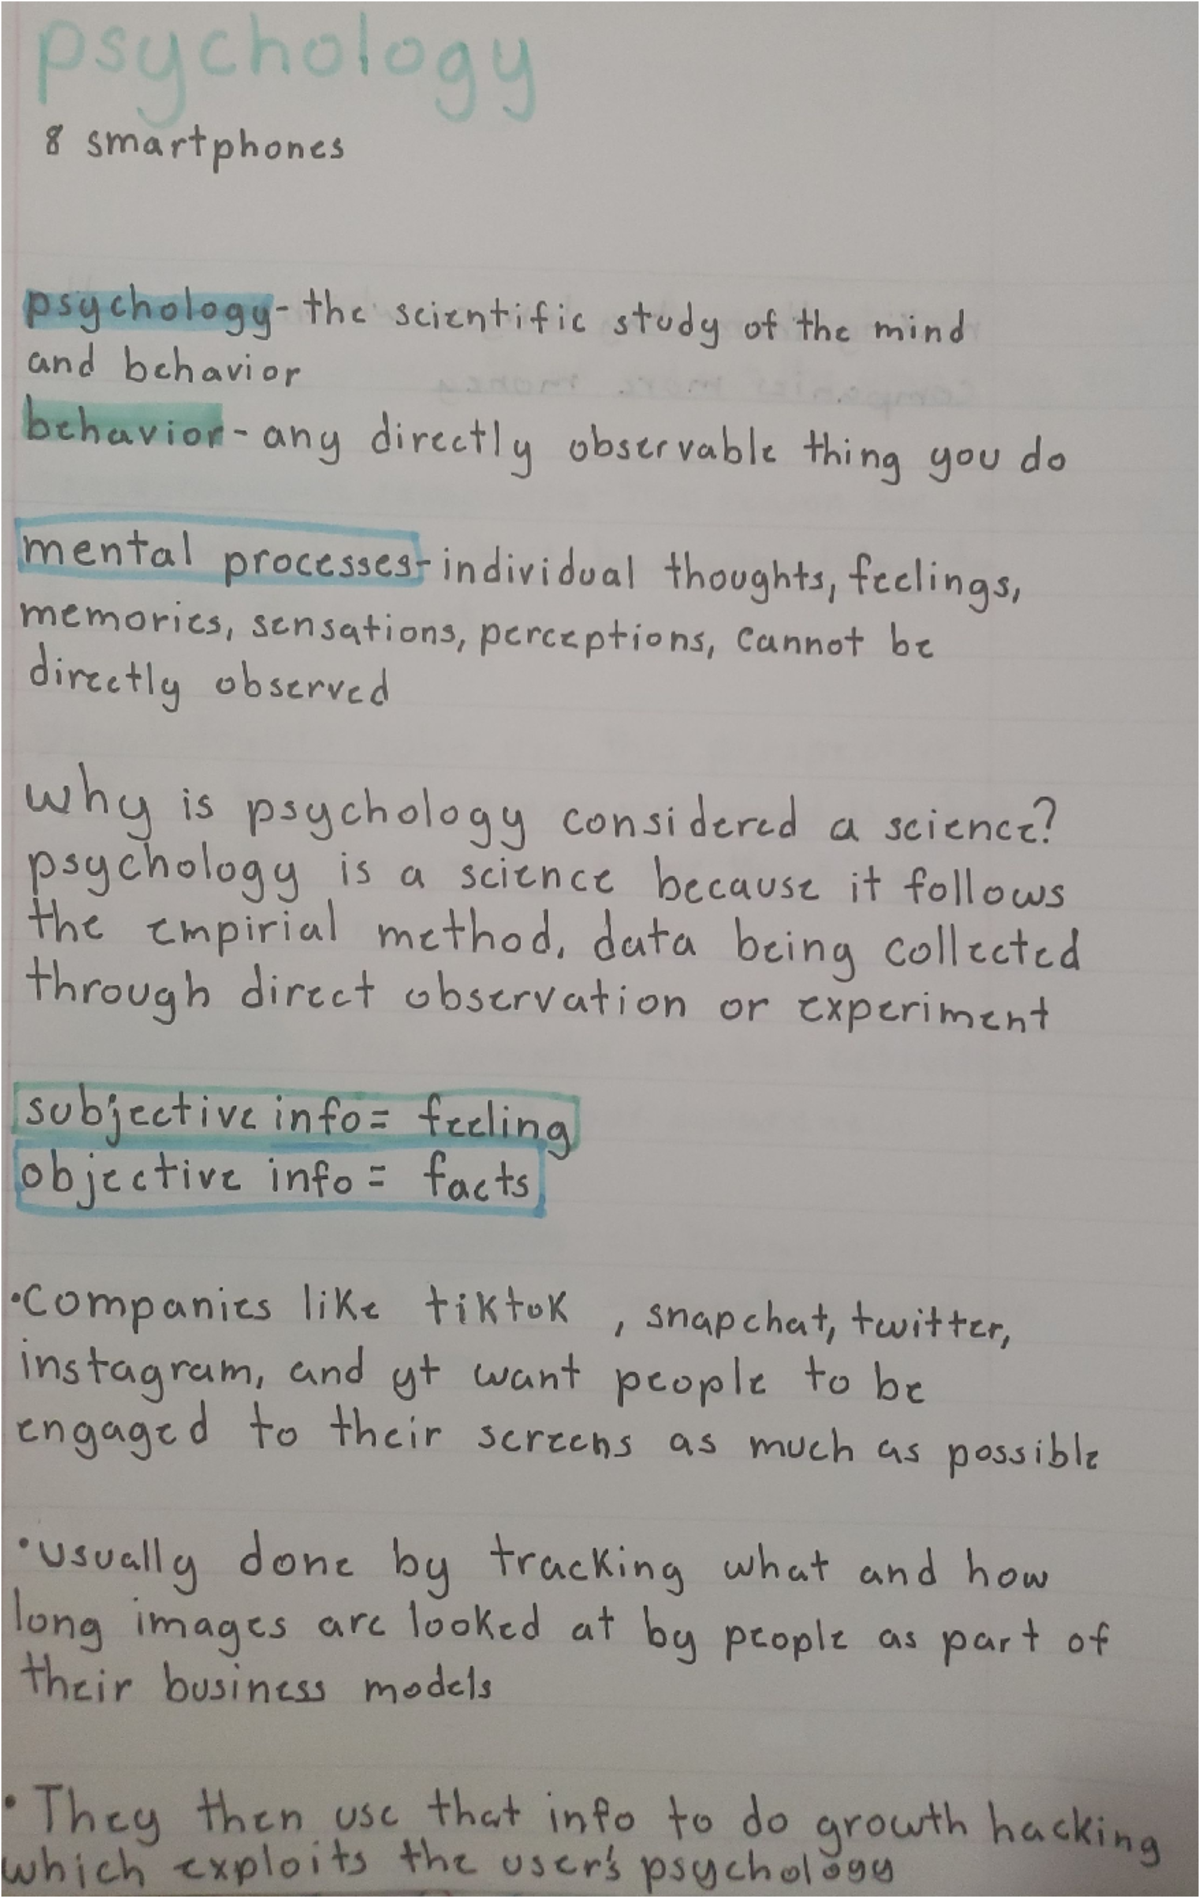 psychology
& smartphones
psychology - the scientific study of the mind
and behavior
behavior - any directly observable thing you do
mental processes - individual thoughts, feelings,
memories, sensations, perceptions, cannot be
directly observed
why is psychology considered a science?
psychology is a science because it follows
the empirial method, data being collected
through direct observation or experiment
subjective info = feeling
objective info = facts
• Companies like tiktok , snapchat, twitter,
instagram, and yt want people to be
engaged to their screens as much as possible
• usually done by tracking what and how
long images are looked at by people as part of
their business models
• They then use that info to do growth hacking
which exploits the user's psychology